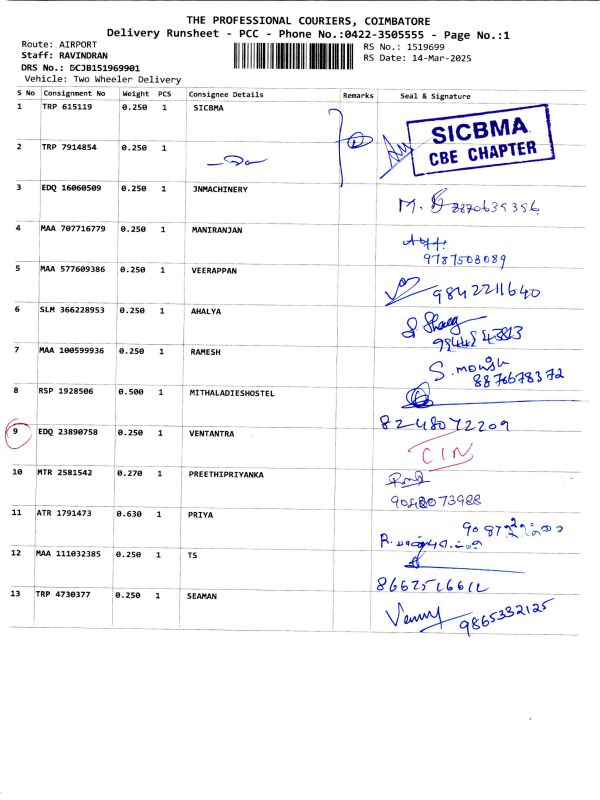 THE PROFESSIONAL COURIERS, COIMBATORE
Delivery Runsheet - PCC - Phone No.:0422-3505555 - Page No.:1
Route: AIRPORT
RS No.: 1519699
Staff: RAVINDRAN
RS Date: 14-Mar-2025
DRS No.: DCJB151969901
Vehicle: Two Wheeler Delivery
S No Consignment No Weight PCS Consignee Details Remarks Seal & Signature
1 TRP 615119 0.250 1 SICBMA
SICBMA
CBE CHAPTER
2 TRP 7914854 0.250 1
3 EDQ 16060509 0.250 1 JNMACHINERY
4 MAA 707716779 0.250 1 MANIRANJAN
9787503089
5 MAA 577609386 0.250 1 VEERAPPAN
9842211640
6 SLM 366228953 0.250 1 AHALYA
7 MAA 100599936 0.250 1 RAMESH
8 RSP 1928506 0.500 1 MITHALADIESHOSTEL
8248072209
9 EDQ 23890758 0.250 1 VENTANTRA
CIN
10 MTR 2581542 0.270 1 PREETHIPRIYANKA
11 ATR 1791473 0.630 1 PRIYA
12 MAA 111032385 0.250 1 TS
13 TRP 4730377 0.250 1 SEAMAN
9865332125